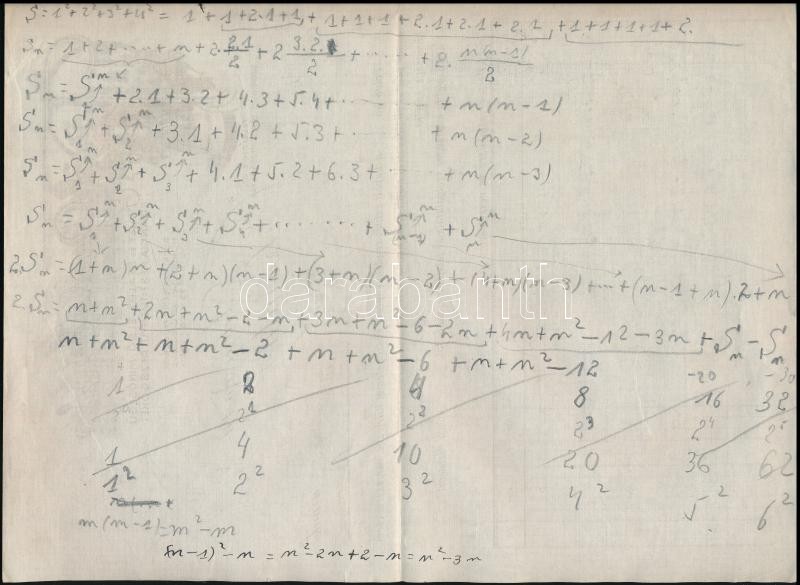 S=1²+2²+3²+4² = 1 + 1+2·1+1, + 1+1+1+2·1+2·1+2·1, +1+1+1+1+2.
Sn = 1+2+ ··· + n + 2·2·1/2 + 2 3·2·1/2 + ····· + 2· n(n-1)/2
Sn = S1↑n + 2·1+3·2+4·3+5·4+ ········ + n(n-1)
Sn = S1↑n + S2↑n + 3·1+4·2+5·3+ ········ + n(n-2)
Sn = S1↑n + S2↑n + S3↑n + 4·1+5·2+6·3+ ······ + n(n-3)
Sn = S1↑n + S2↑n + S3↑n + S4↑n + ········ + S(n-1)↑n + Sn↑n
2·Sn = (1+n)n + (2+n)(n-1) + (3+n)(n-2) + (4+n)(n-3) + ··· + (n-1+n)·2+n
darabanth
2·Sn = n+n²+2n+n²-2-n, +3m+n²-6-2n+4n+n²-12-3n + Sn - Sn
n+n²+n+n²-2 + n+n²-6 + n+n²-12
-20 -30
1 2 4 8 16 32
2¹ 2² 2³ 2⁴ 2⁵
1 4 10 20 36 62
1² 2² 3² 4² 5² 6²
m(m-1)=m²-m
(n-1)²-n = n²-2n+2-n=n²-3n